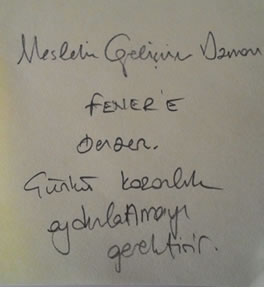 Mesleğin Gelişimi Daman
FENER'E
benzer.
Günkü karanlık
aydınlatmayı
gerektirir.